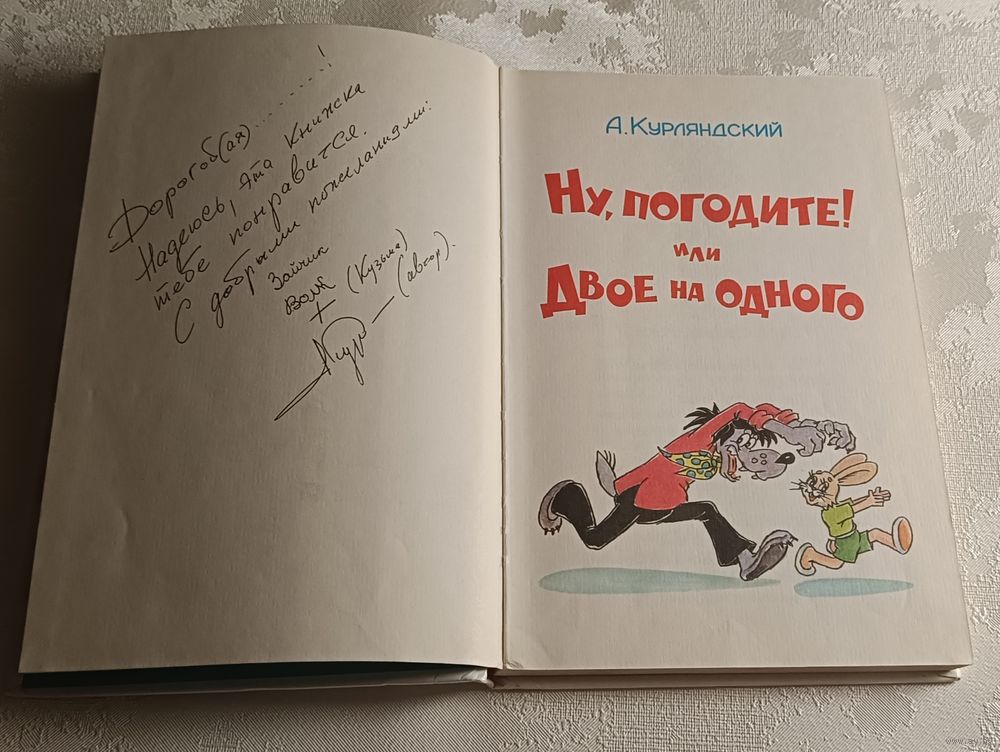 Дорогой(ая)..........!
Надеюсь, эта книжка
тебе понравится.
С добрыми пожеланиями:
Зайчик
Волк (Кузьма)
+ — (автор).
А. Курляндский
Ну, погодите!
или
Двое на одного